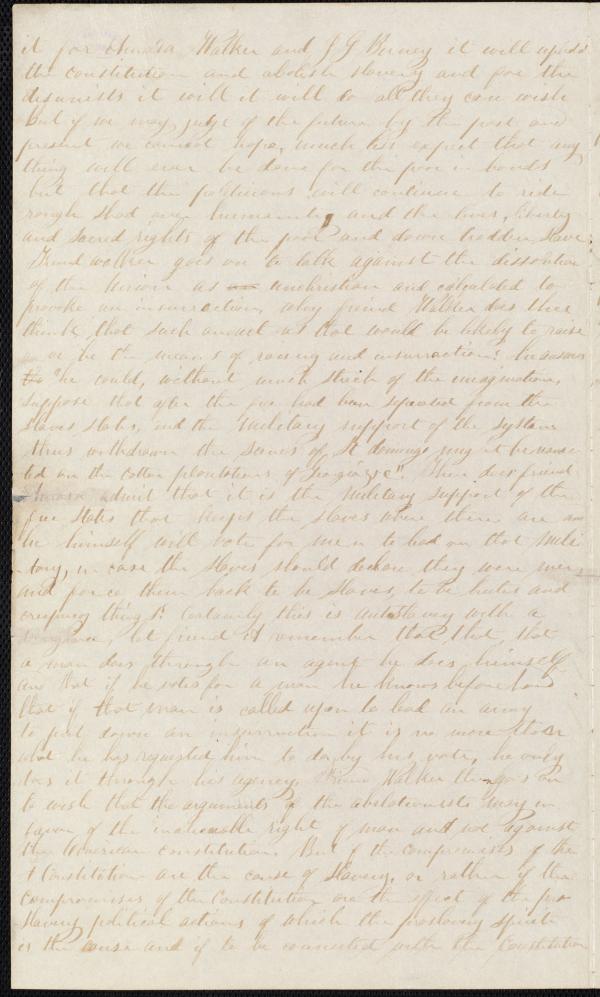 it for Amasa Walker and J G Birney it will uphold
the constitution and abolish slavery and for the
disunists it will it will do all they can wish
But if we may judge of the future by the past and
present we cannot hope, much less expect that any
thing will ever be done for the poor in bonds
but that the politicians will continue to ride
rough shod over humanity, and the lives, liberty
and sacred rights of the poor and down trodden slave.
Friend walker goes on to talk against the dissolution
of the Union as unchristian and calculated to
provoke an insurrection, why friend Walker does thee
think that such an act as that would be likely to raise
or be the means of raising and insurrection?
he could, without much strech of the imagination,
suppose that after the free had been separated from the
slaves states, and the Military support of the system
thus withdrawn the scenes of St domingo may it be reenac
ted on the cotton plantations of Georgia &c". Then does friend
Amasa admit that it is the Military support of the
free states that keeps the slaves where there are and
he himself will vote for men to lead on that Mili
tary, in case the slaves should declare they were men,
and force them back to be slaves, to be brutes and
creeping things! Certainly this is antislavery with a
let friend A remember that, that, that
a man does through an agent he does himself
and that if he votes for a man he knows before hand
that if that man is called upon to lead an army
to put down an insurrection it is no more than
what he has requested him to do by his vote, he only
does it through his agency. Friend Walker then goes on
to wish that the arguments of the abolitionists may
favor of the inalienable right of man and not against
the American constitution. But if the compromises of the
Constitution are the cause of slavery, or rather if the
compromises of the Constitution are the effect of the pro
slavery political actions of which the proslavery spirit
is the cause and if to be connected with the Constitution